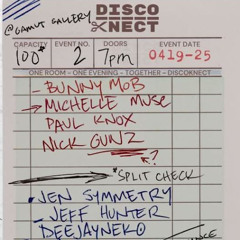 @GAMUT GALLERY
DISCO
KNECT
CAPACITY EVENT NO. DOORS EVENT DATE
100* 2 7pm 0419-25
ONE ROOM - ONE EVENING - TOGETHER - DISCOKNECT
- BUNNY MOB
→ MICHELLE MUSE
PAUL KNOX
NICK GUNZ
?
"SPLIT CHECK
JEN SYMMETRY
- JEFF HUNTER
DEEJAYNEKO